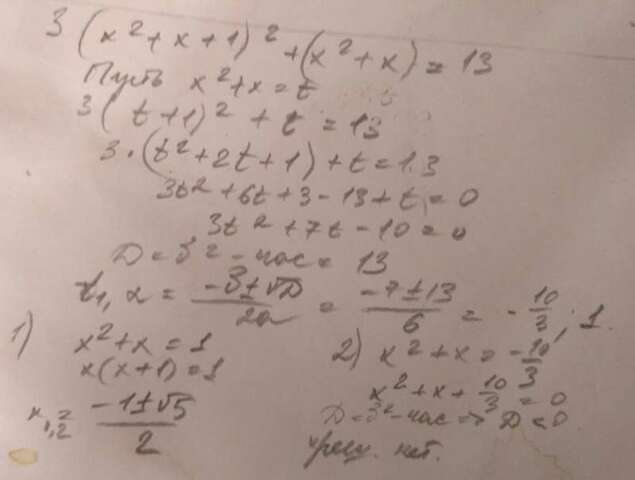 3(x²+x+1)²+(x²+x)=13
Пусть x²+x=t
3(t+1)²+t=13
3·(t²+2t+1)+t=13
3t²+6t+3-13+t=0
3t²+7t-10=0
D=b²-4ac=13
t₁,₂ = (-b±√D)/2a = (-7±13)/6 = -10/3; 1.
1) x²+x=1
x(x+1)=1
x₁,₂ = (-1±√5)/2
2) x²+x=-10/3
x²+x+10/3=0
D=b²-4ac => D<0.
нет.